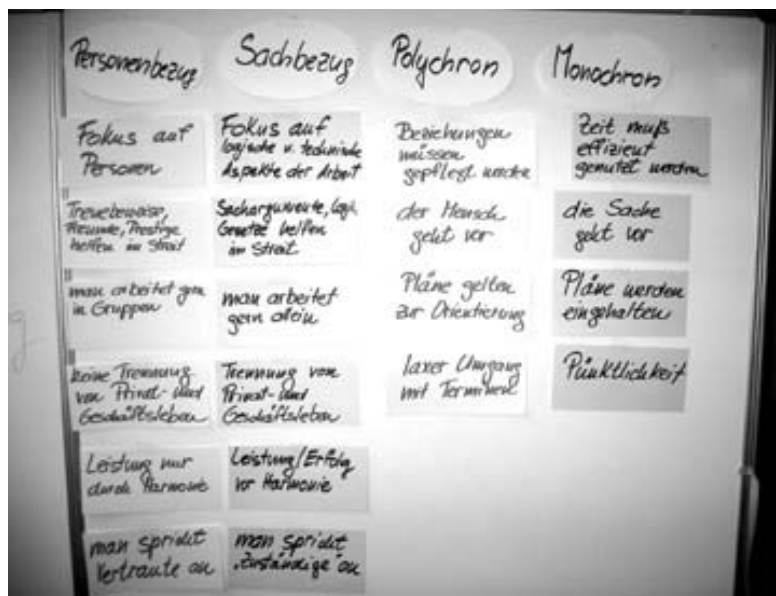 Personenbezug
Fokus auf
Personen
Treuebeweise,
Freunde, Prestige
helfen im Streit
man arbeitet gern
in Gruppen
keine Trennung
von Privat- und
Geschäftsleben
Leistung nur
durch Harmonie
man spricht
Vertraute an
Sachbezug
Fokus auf
logische u. technische
Aspekte der Arbeit
Sachargumente, logi.
Gesetze helfen
im Streit
man arbeitet
gern allein
Trennung von
Privat- und
Geschäftsleben
Leistung/Erfolg
vor Harmonie
man spricht
"Zuständige" an
Polychron
Beziehungen
müssen
gepflegt werden
der Mensch
geht vor
Pläne gelten
zur Orientierung
laxer Umgang
mit Terminen
Monochron
Zeit muß
effizient
genutzt werden
die Sache
geht vor
Pläne werden
eingehalten
Pünktlichkeit